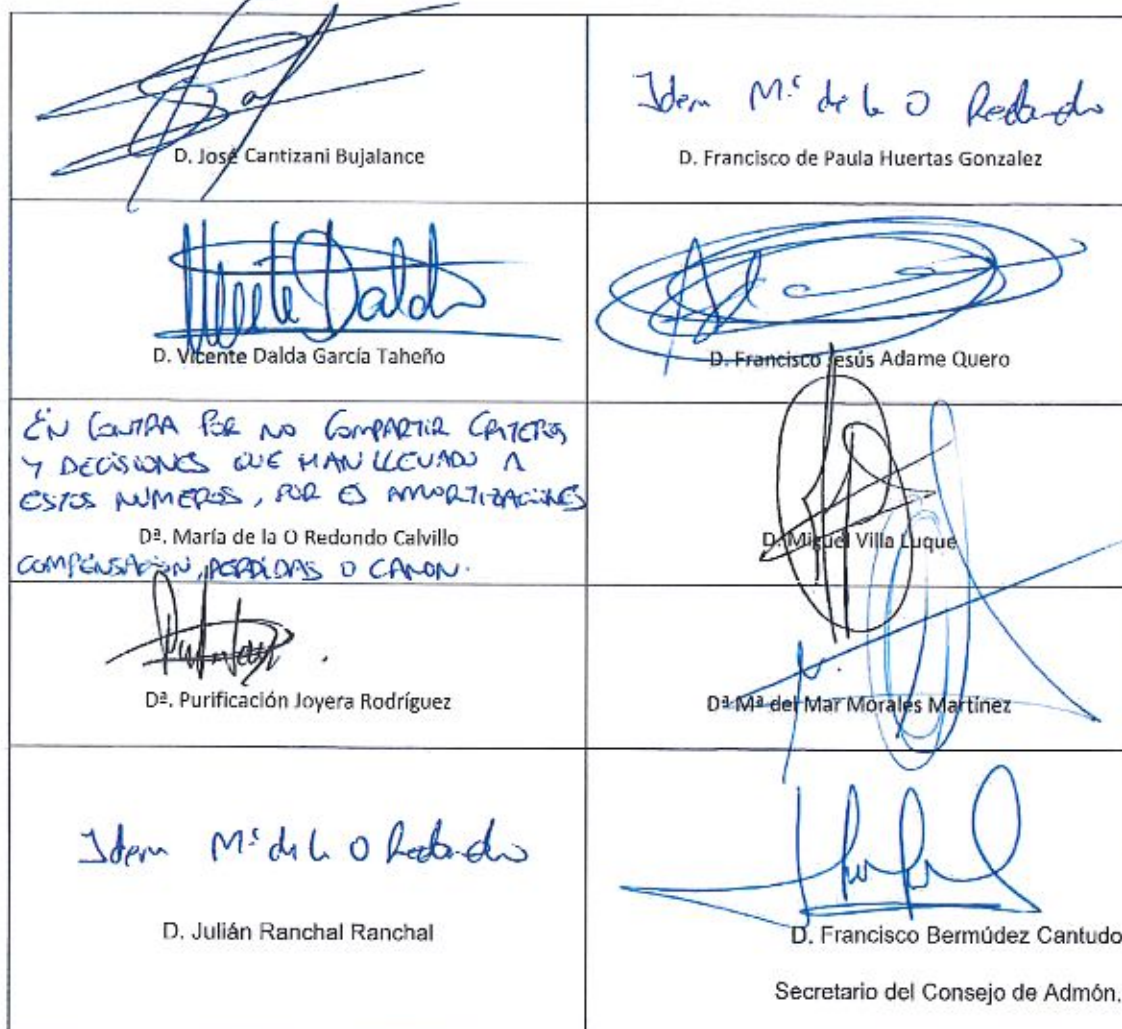 D. José Cantizani Bujalance
Idem Mª de la O Redondo
D. Francisco de Paula Huertas Gonzalez
Vicente Dalda
D. Vicente Dalda García Taheño
D. Francisco Jesús Adame Quero
EN CONTRA POR NO COMPARTIR CRITERIOS
Y DECISIONES QUE HAN LLEVADO A
ESTOS NÚMEROS, POR EJ AMORTIZACIONES
Dª. María de la O Redondo Calvillo
COMPENSACIÓN, PERDIDAS O CANON.
D. Miguel Villa Luque
Dª. Purificación Joyera Rodríguez
Dª Mª del Mar Morales Martínez
Idem Mª de la O Redondo
D. Julián Ranchal Ranchal
D. Francisco Bermúdez Cantudo
Secretario del Consejo de Admón.